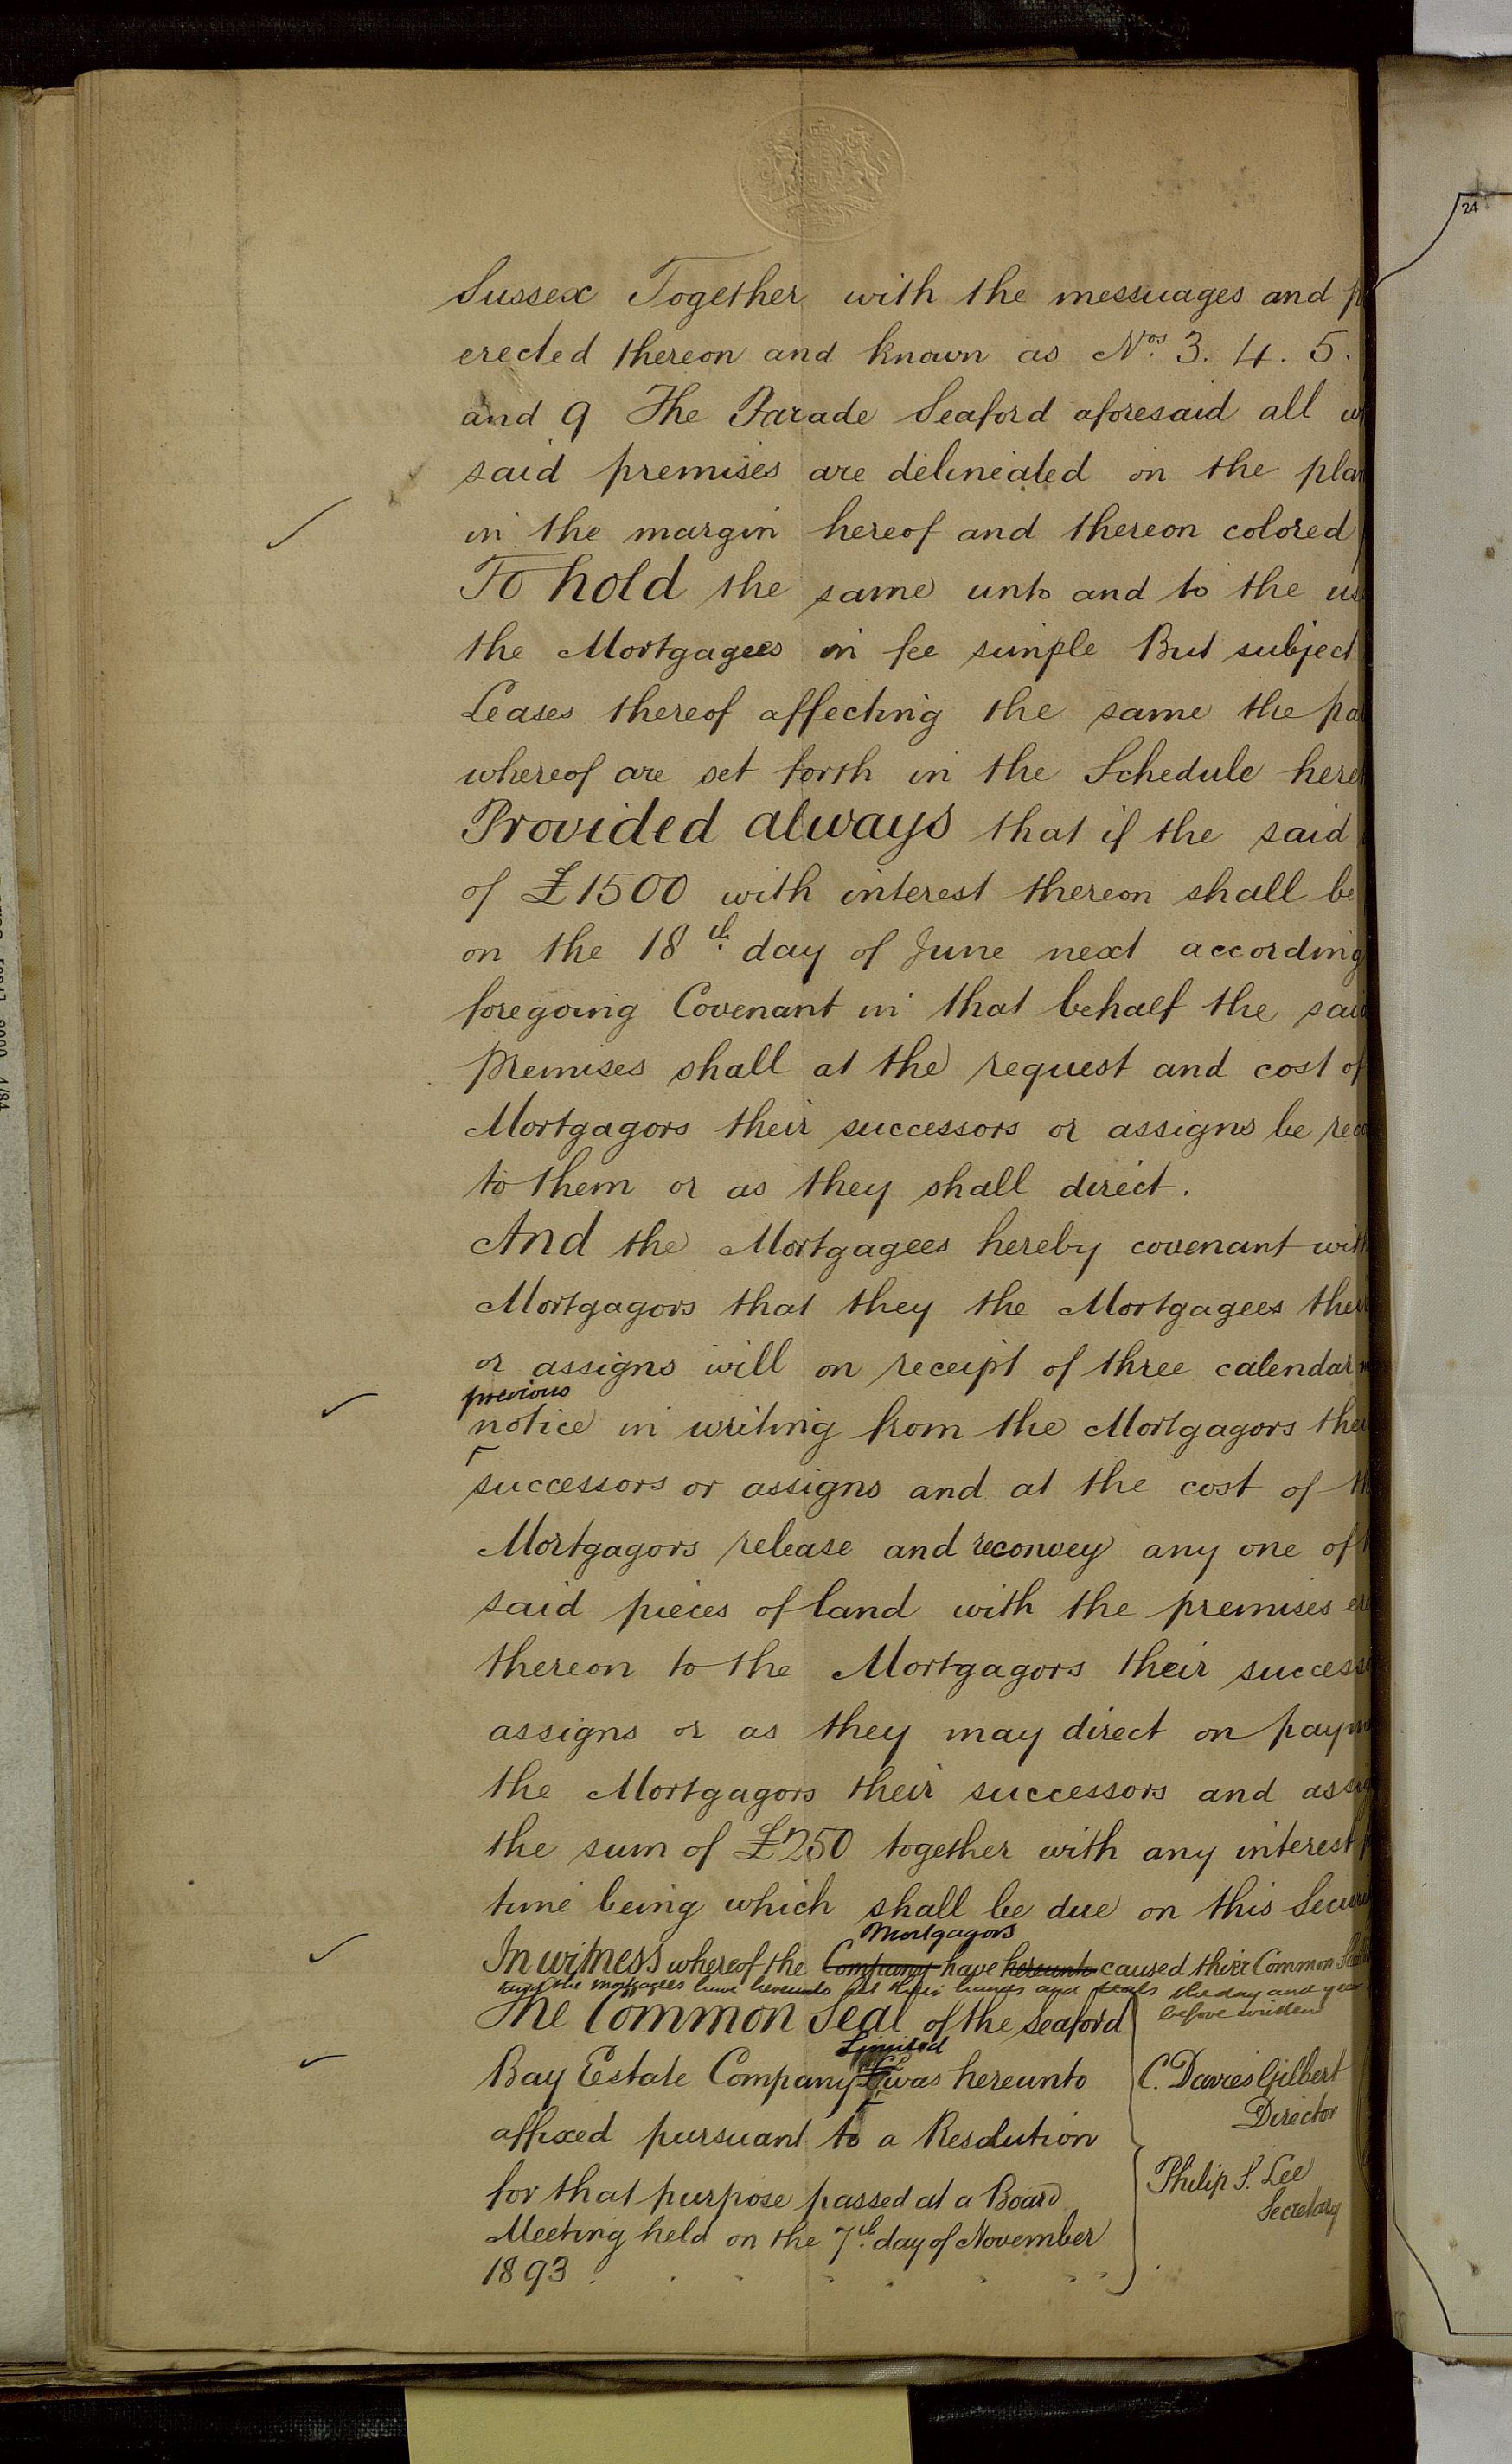 Sussex Together with the messuages and p
erected thereon and known as Nos. 3. 4. 5.
and 9 The Parade Seaford aforesaid all w
said premises are delineated on the plan
in the margin hereof and thereon colored
To hold the same unto and to the us
the Mortgagees in fee simple But subject
Leases thereof affecting the same the pa
whereof are set forth in the Schedule here
Provided always that if the said
of £1500 with interest thereon shall be
on the 18th day of June next according
foregoing Covenant in that behalf the said
premises shall at the request and cost of
Mortgagors their successors or assigns be reco
to them or as they shall direct.
And the Mortgagees hereby covenant with
Mortgagors that they the Mortgagees their
or assigns will on receipt of three calendar m
previous
notice in writing from the Mortgagors thei
successors or assigns and at the cost of th
Mortgagors release and reconvey any one of t
said pieces of land with the premises ere
thereon to the Mortgagors their successo
assigns or as they may direct on paym
the Mortgagors their successors and assig
the sum of £250 together with any interest f
time being which shall be due on this Securi
Mortgagors
In witness whereof the Company have hereunto caused their Common Seal
the mortgagees have hereunto set their hands and seals the day and year
before written
The Common Seal of the Seaford
Limited
Bay Estate Company was hereunto
affixed pursuant to a Resolution
for that purpose passed at a Board
Meeting held on the 7th day of November
1893.
C. Davies Gilbert
Director
Philip S. Lee
Secretary
24